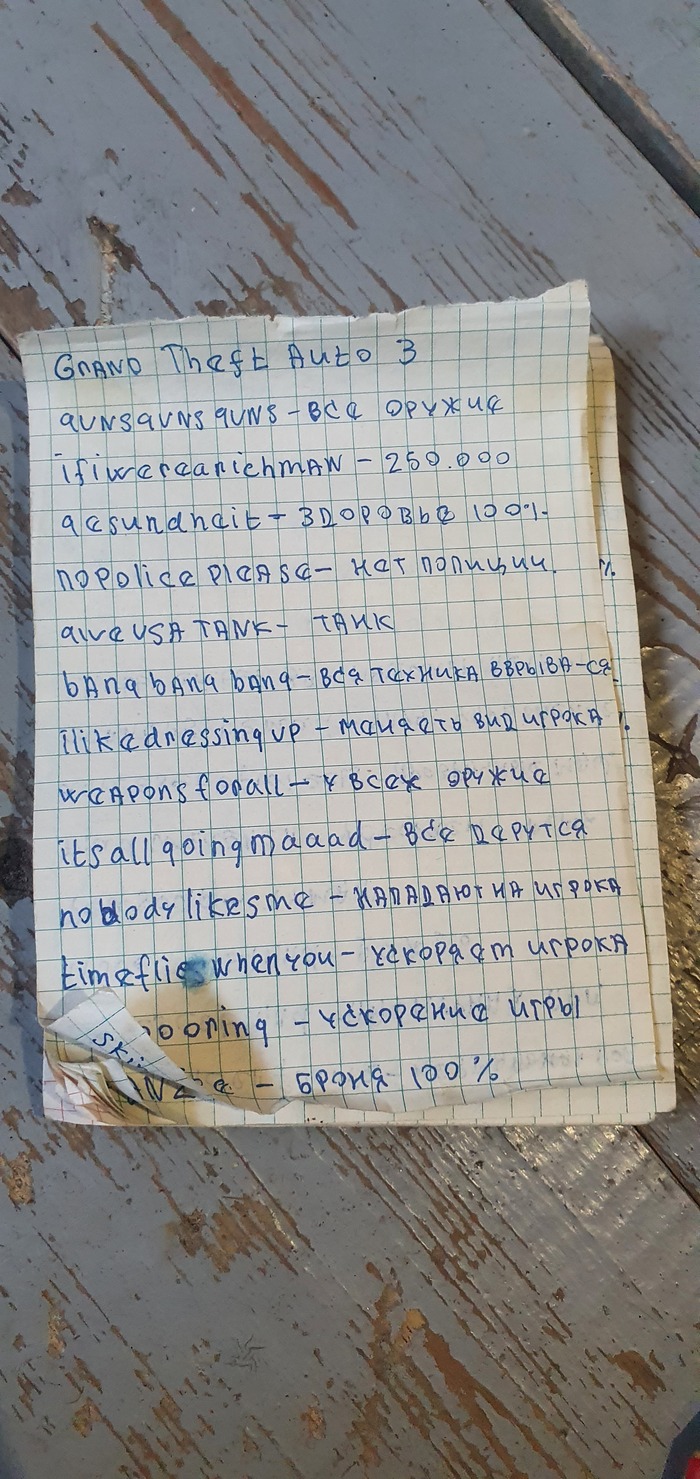 GRAND Theft Auto 3
gunsgunsguns - все оружие
ifiwerearichman - 250.000
gesundheit - здоровье 100%
nopoliceplease - нет полиции.
giveusatank - танк
bangbangbang - вся техника ввзрыва-ся
ilikedressingup - менять вид игрока
weaponsforall - у всех оружие
itsallgoingmaaad - все дерутся
nobodylikesme - нападают на игрока
timeflieswhenyou - ускоряет игрока
- ускорение игры
- броня 100%